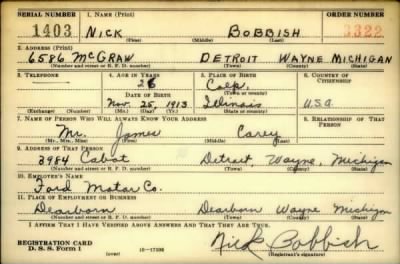 SERIAL NUMBER 1. NAME (Print) ORDER NUMBER
1403 NICK BOBBISH 3322
(First) (Middle) (Last)
2. ADDRESS (Print)
6586 McGRAW DETROIT WAYNE MICHIGAN
(Number and street or R. F. D. number) (Town) (County) (State)
3. TELEPHONE 4. AGE IN YEARS 5. PLACE OF BIRTH 6. COUNTRY OF CITIZENSHIP
26 Colp
DATE OF BIRTH (Town or county)
Nov. 25, 1913 Illinois U.S.A.
(Exchange) (Number) (Mo.) (Day) (Yr.) (State or country)
7. NAME OF PERSON WHO WILL ALWAYS KNOW YOUR ADDRESS 8. RELATIONSHIP OF THAT PERSON
Mr. James Carey
(Mr., Mrs., Miss) (First) (Middle) (Last)
9. ADDRESS OF THAT PERSON
3984 Cabot Detroit, Wayne, Michigan
(Number and street or R. F. D. number) (Town) (County) (State)
10. EMPLOYER'S NAME
Ford Motor Co.
11. PLACE OF EMPLOYMENT OR BUSINESS
Dearborn Dearborn Wayne Michigan
(Number and street or R. F. D. number) (Town) (County) (State)
I AFFIRM THAT I HAVE VERIFIED ABOVE ANSWERS AND THAT THEY ARE TRUE.
REGISTRATION CARD Nick Bobbish
D. S. S. Form 1 (over) 16—17105 (Registrant's signature)